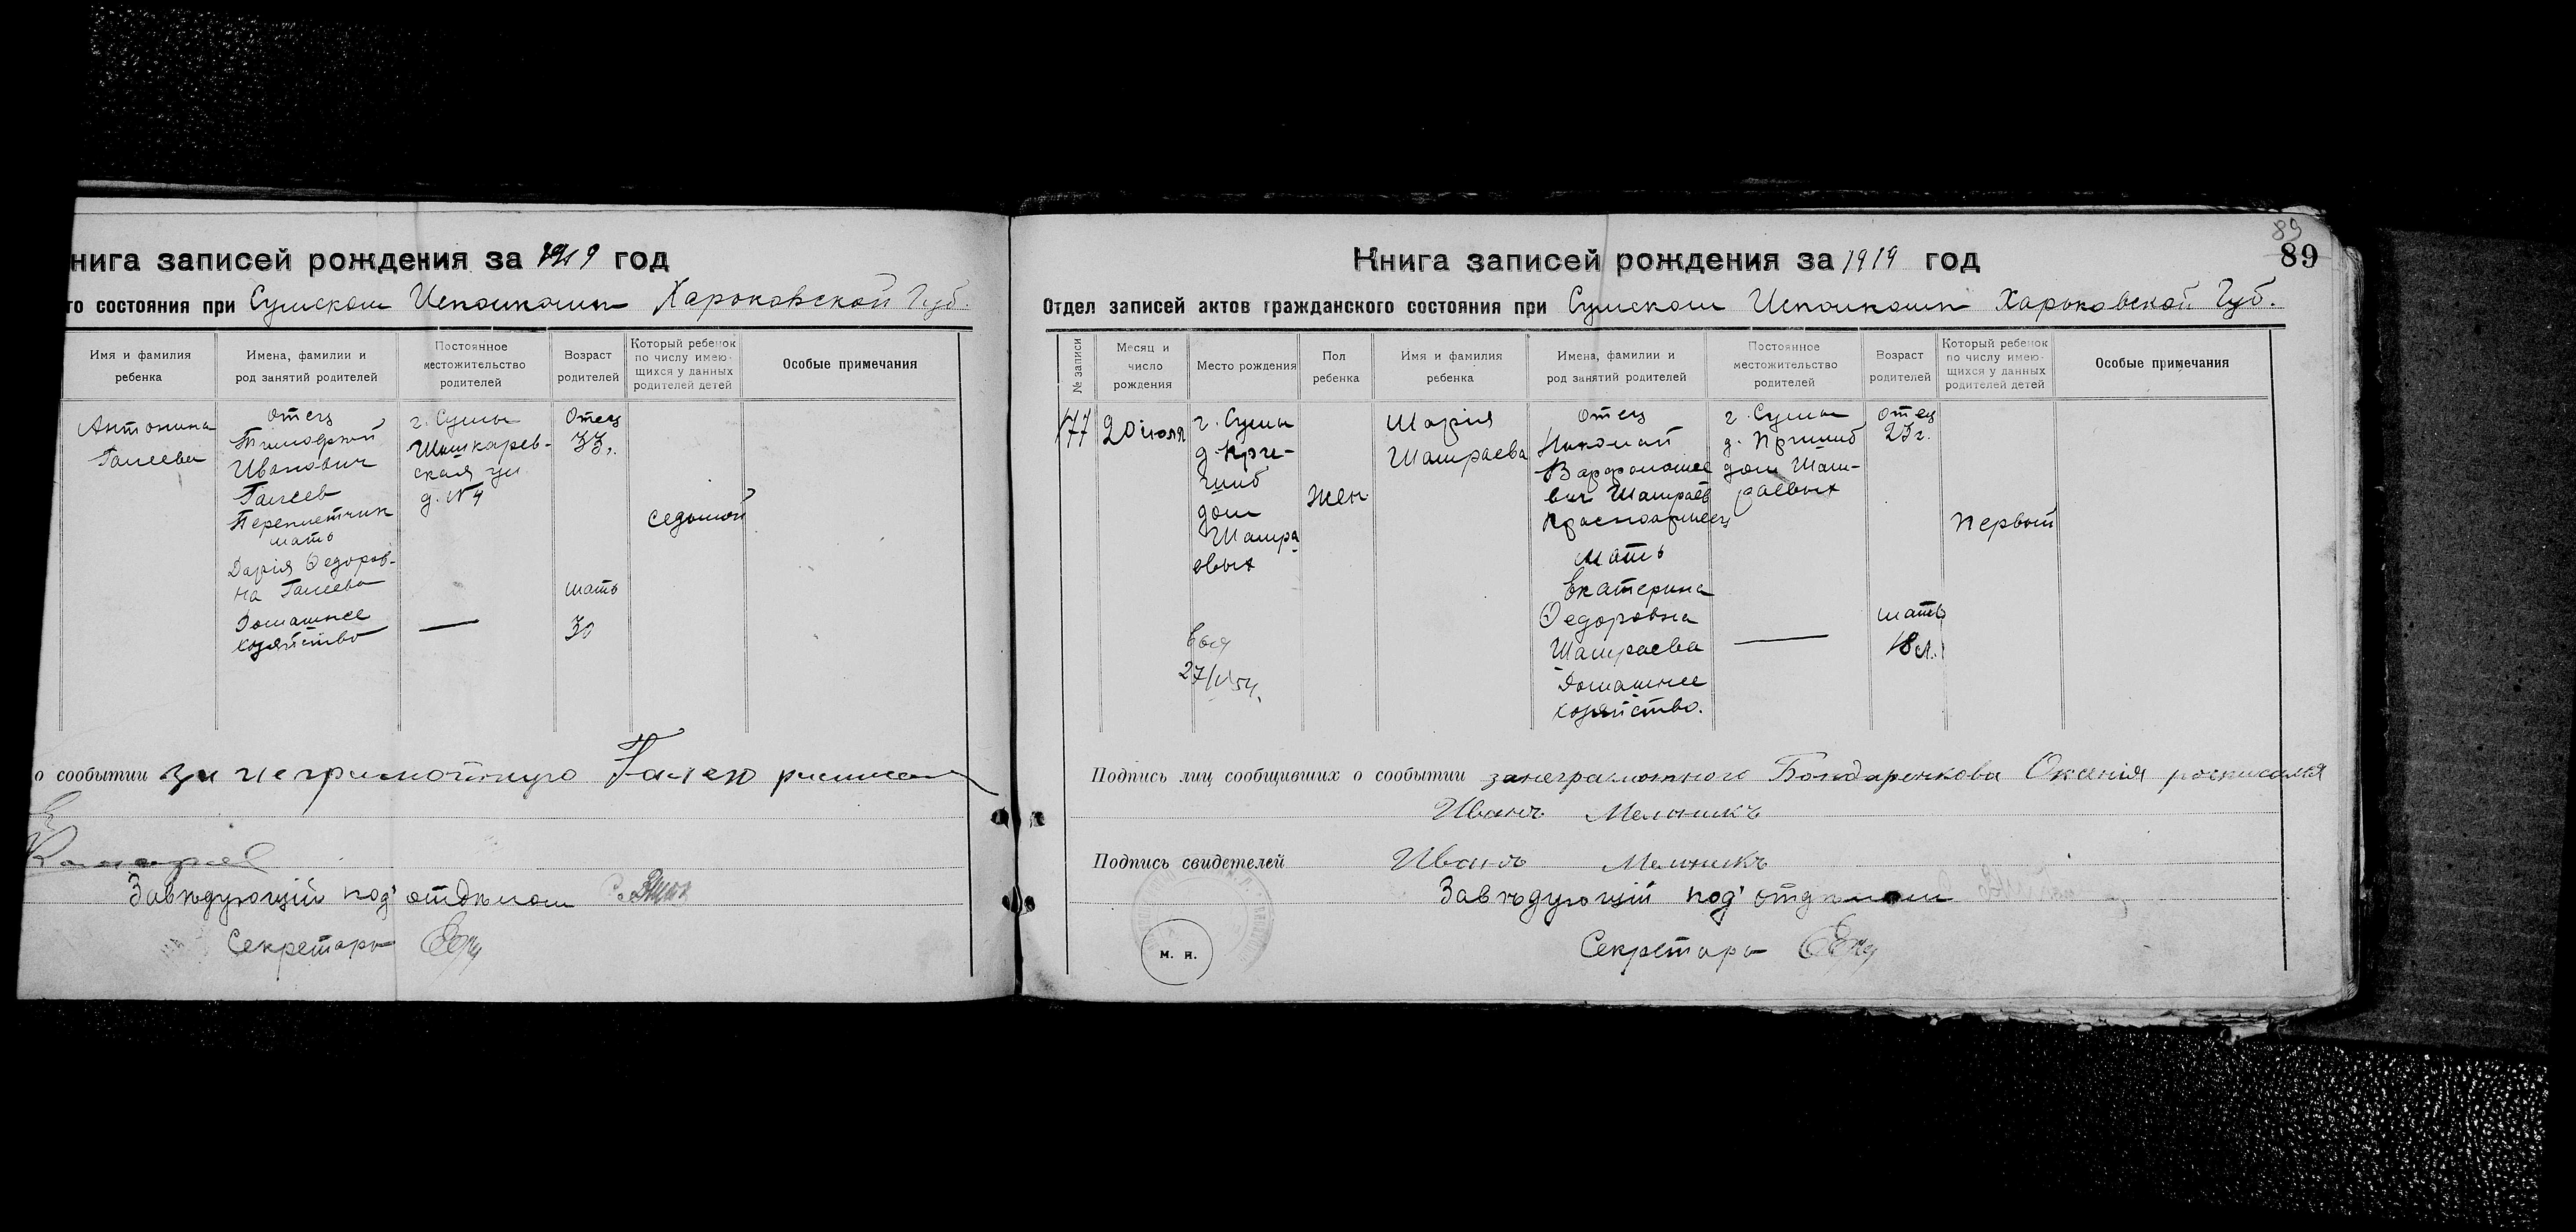 нига записей рождения за 1919 год
го состояния при Сумском Исполкоме Харьковской Губ.
Имя и фамилия
ребенка
Имена, фамилии и
род занятий родителей
Постоянное
местожительство
родителей
Возраст
родителей
Который ребенок
по числу имею-
щихся у данных
родителей детей
Особые примечания
Антонина
Галеева
отец
Тимофей
Иванович
Галеев
Переплетчик
мать
Дарія Федоров-
на Галеева
Домашнее
хозяйство
г. Сумы
ская ул
д. №9
—
Отец
33.
мать
30
седьмой
о сообытии за неграмотную
Завѣдующій под'отдѣлом
Секретарь
89
89
Книга записей рождения за 1919 год
Отдел записей актов гражданского состояния при Сумском Исполкоме Харьковской Губ.
№ записи
Месяц и
число
рождения
Место рождения
Пол
ребенка
Имя и фамилия
ребенка
Имена, фамилии и
род занятий родителей
Постоянное
местожительство
родителей
Возраст
родителей
Который ребенок
по числу имею-
щихся у данных
родителей детей
Особые примечания
177
20 июля
г. Сумы
д. При-
шиб
дом
Шамра
евых
27/V 54.
Жен
Марія
Шамраева
Отец
Николай
Варфоломее
вич Шамраев
Красноармеец
Мать
Екатерина
Федоровна
Шамраева
Домашнее
хозяйство.
г. Сумы
д. Пришиб
дом Шам-
раевых
—
отец
23 г.
мать
18 л.
Первый
Подпись лиц сообщивших о сообытии занеграмотного Бондаренкова Оксенія росписался
Иванъ Мельникъ
Подпись свидетелей Иванъ Мельникъ
Завѣдующій под'отдѣлом
Секретарь
м. п.